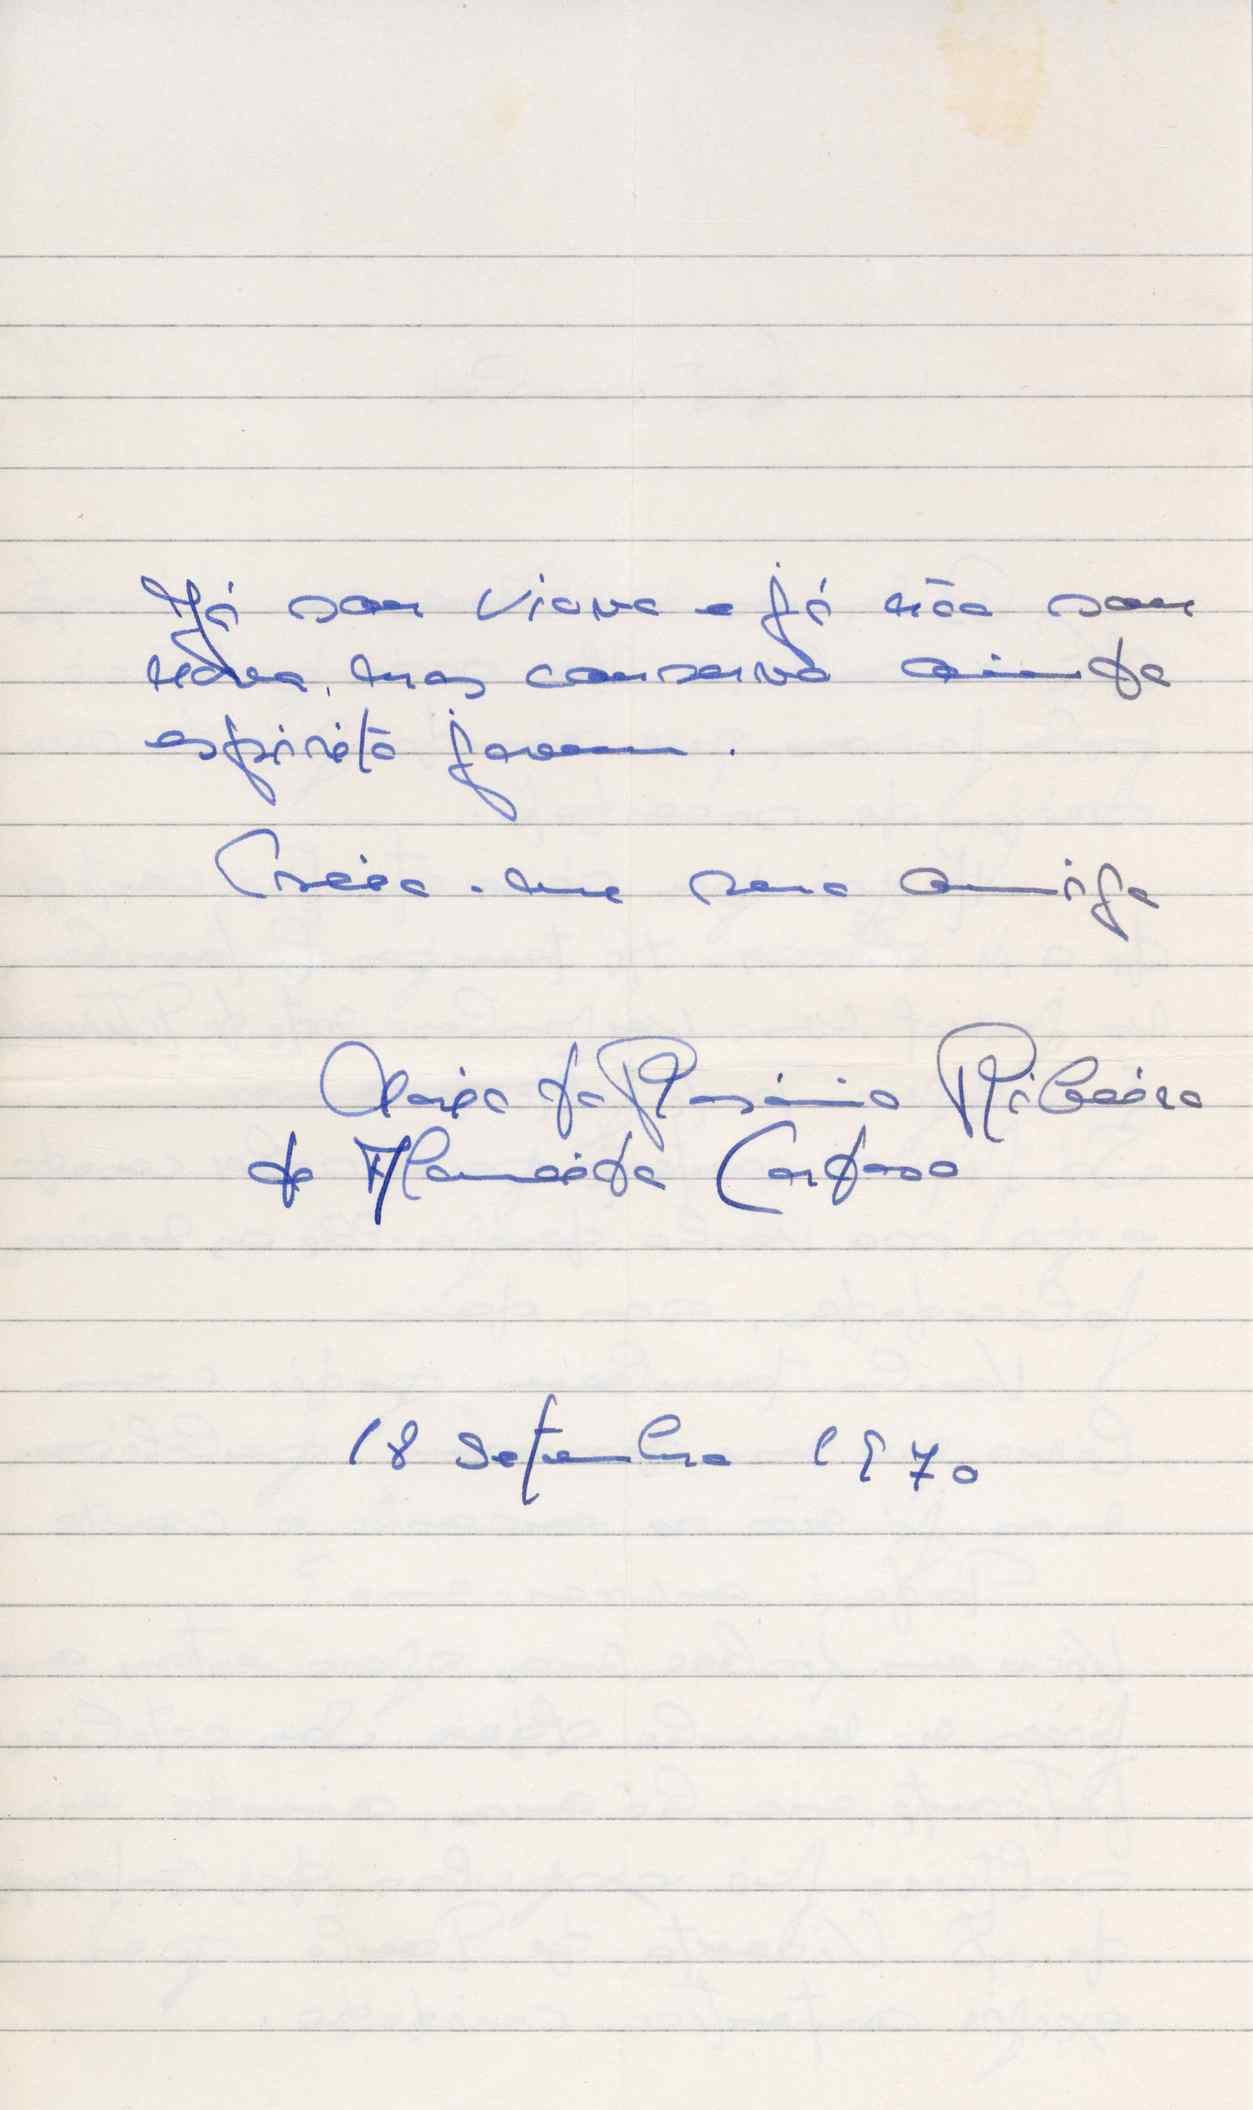 Já sou viuva e já não sou
nova, mas conservo ainda
espirito jovem.
Creia-me sua amiga
Maria do Rosário Ribeiro
de Almeida Cardoso
18 Setembro 1970